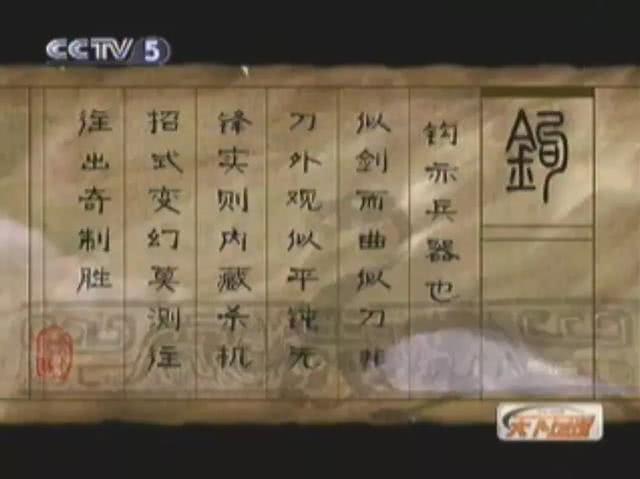 CCTV 5
鉤
钩亦兵器也
似剑而曲似刀非
刀外观似平钝无
锋实则内藏杀机
招式变幻莫测往
往出奇制胜